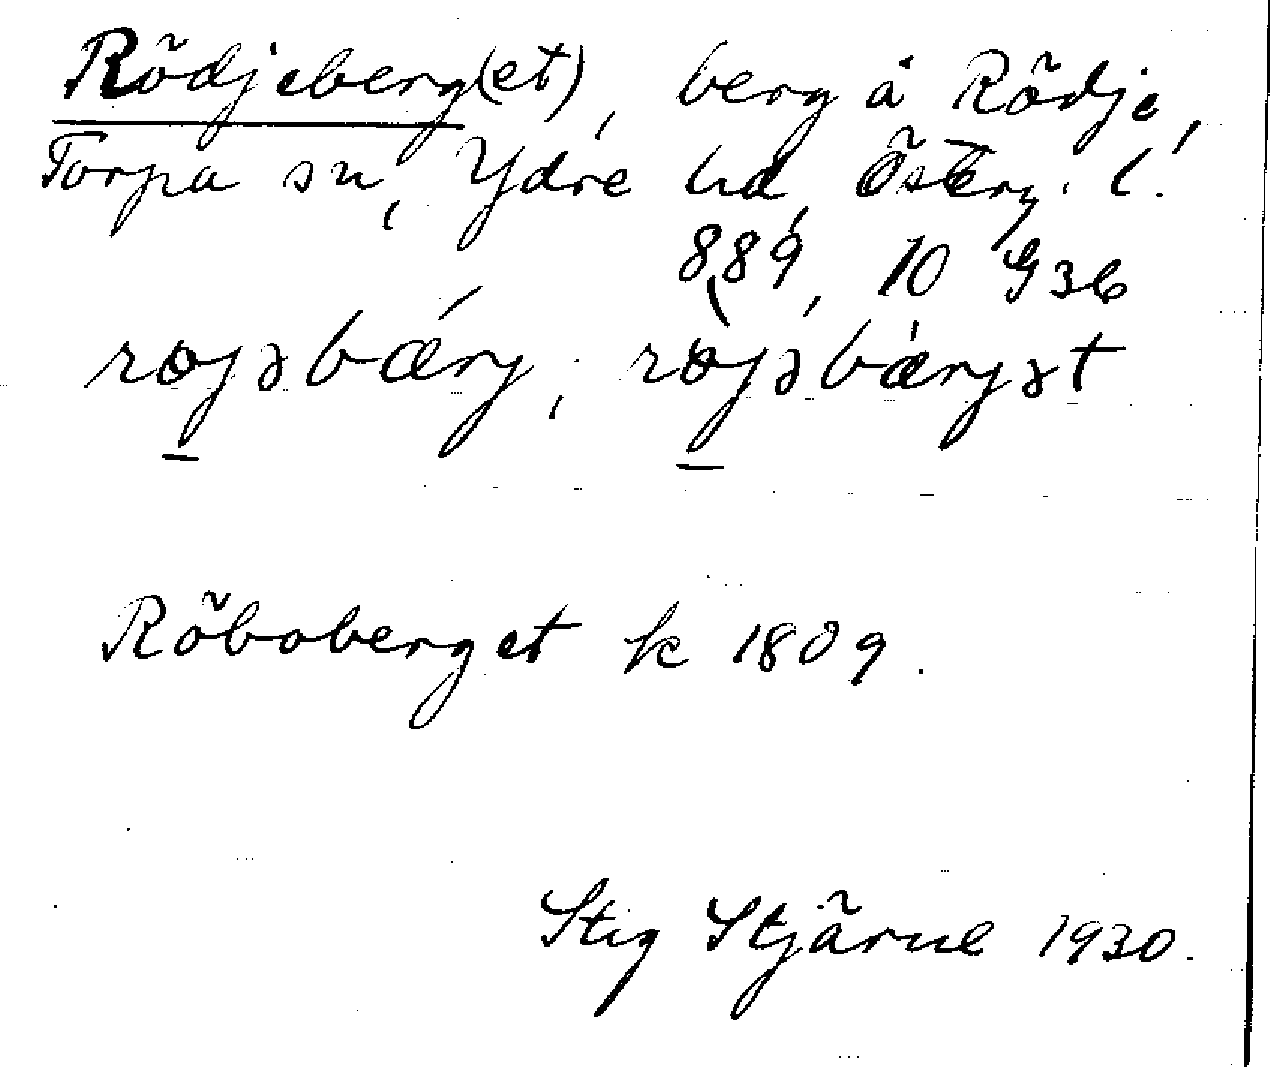 Rödjeberg(et), berg å Rödje,
Torpa sn, Ydre hd, Österg. l.
889, 10 G 36
røjəbærj, røjəbærjət
Röboberget k 1809.
Stig Stjärne 1930.